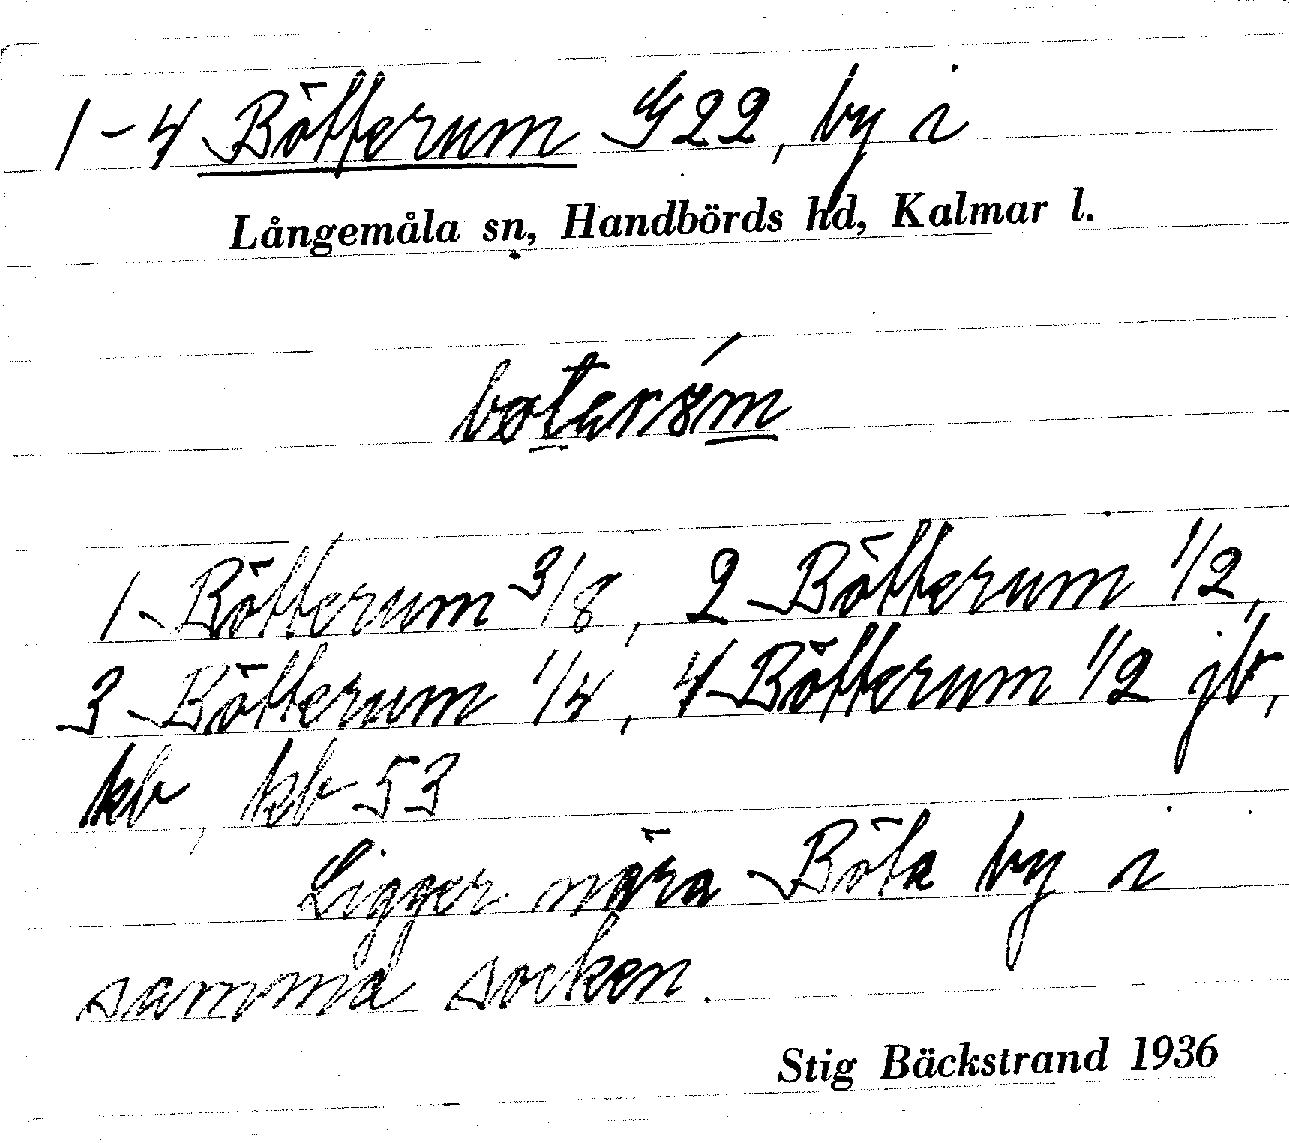 1-4 Bötterum G22, by i
Långemåla sn, Handbörds hd, Kalmar l.
1 Bötterum 3/8, 2 Bötterum 1/2,
3 Bötterum 1/4, 4 Bötterum 1/2 jb,
kb, kb 53
Ligger nära Böta by i
samma socken.
Stig Bäckstrand 1936